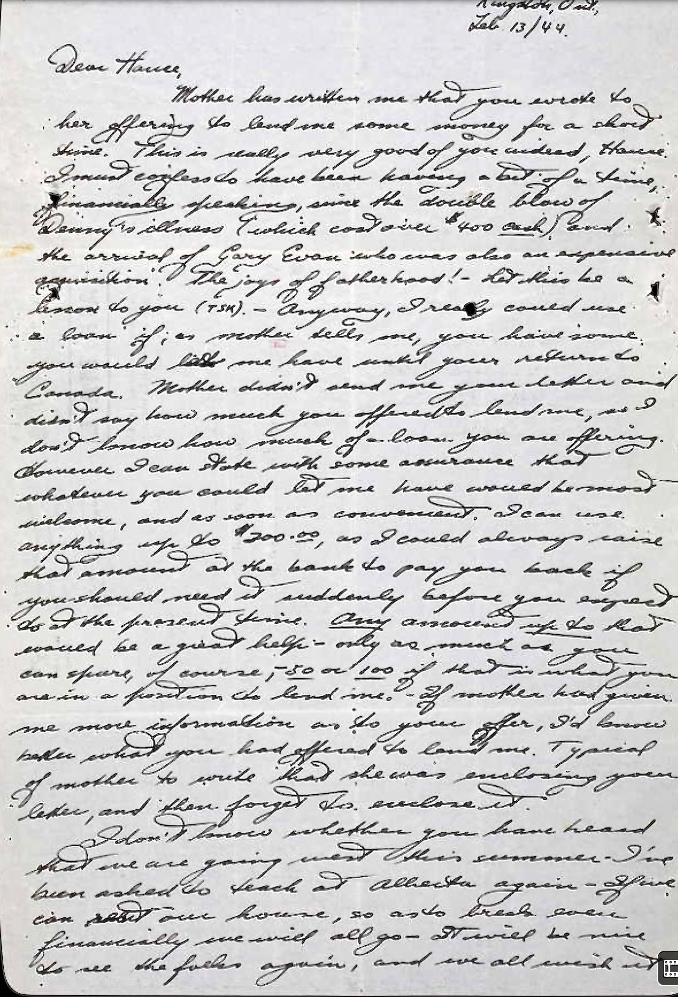 Kingston, Ont.,
Feb 13/44.
Dear Hance,
Mother has written me that you wrote to
her offering to lend me some money for a short
time. This is really very good of you indeed, Hance.
I must confess to have been having a bit of a time,
financially speaking, since the double blow of
Denny's illness (which cost over $400 cash) and
the arrival of Gary Evan who was also an expensive
aquisition. The joys of fatherhood! - Let this be a
lesson to you (TSK). - Anyway, I really could use
a loan if, as mother tells me, you have some
you would let me have until your return to
Canada. Mother didn't send me your letter and
didn't say how much you offered to lend me, so I
don't know how much of a loan you are offering.
However I can state with some assurance that
whatever you could let me have would be most
welcome, and as soon as convenient. I can use
anything up to $200.00, as I could always raise
that amount at the bank to pay you back if
you should need it suddenly before you expect
to at the present time. Any amount up to that
would be a great help - only as much as you
can spare, of course, - 50 or 100 if that is what you
are in a position to lend me. - If mother had given
me more information as to your offer, I'd know
better what you had offered to lend me. Typical
of mother to write that she was enclosing your
letter, and then forget to enclose it.
I don't know whether you have heard
that we are going west this summer - I've
been asked to teach at Alberta again - If we
can rent our house, so as to break even
financially we will all go - It will be nice
to see the folks again, and we all wish it